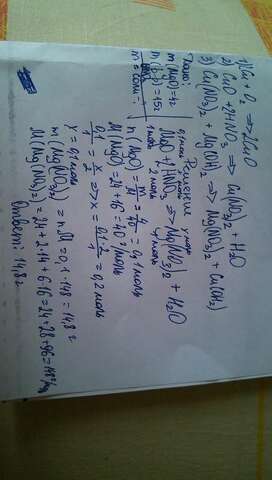 1) Cu + O₂ => 2CuO
2) CuO + 2HNO₃ => Cu(NO₃)₂ + H₂O
3) Cu(NO₃)₂ + Mg(OH)₂ => Mg(NO₃)₂ + Cu(OH₂)
Дано:
m(MgO)=4г
m соли - ?
Решение
0,1моль x моль y моль
MgO + 2HNO₃ => Mg(NO₃)₂ + H₂O
1моль 2 моль 1 моль
n(MgO) = m/M = 4/40 = 0,1 моль
M(MgO) = 24 + 16 = 40 г/моль
0,1/1 = x/2 => x = 0,1·2/1 = 0,2 моль
y = 0,1 моль
m(Mg(NO₃)₂) = nM = 0,1 · 148 = 14,8 г
M(Mg(NO₃)₂) = 24 + 2·14 + 6·16 = 24 + 28 + 96 = 148 г/моль
Ответ: 14,8 г